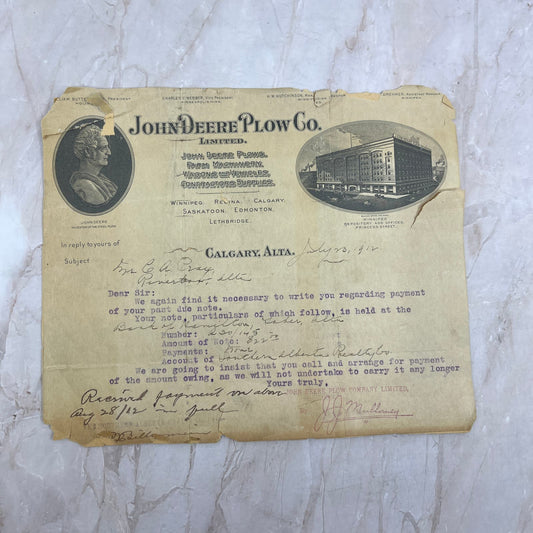 WILLIAM BUTTERWORTH, PRESIDENT
CHARLES C. WEBBER, Vice President
MINNEAPOLIS, MINN.
H.W. HUTCHINSON,
WINNIPEG
JOHN DEERE PLOW CO.
LIMITED.
JOHN DEERE PLOWS.
FARM MACHINERY.
WAGONS AND VEHICLES.
CONTRACTORS SUPPLIES.
WINNIPEG, REGINA, CALGARY,
SASKATOON, EDMONTON,
LETHBRIDGE.
JOHN DEERE
INVENTOR OF THE STEEL PLOW
WINNIPEG
REPOSITORY AND OFFICES,
PRINCESS STREET.
In reply to yours of
Subject
CALGARY, ALTA. July 23, 1912
Mr C A
Alta
Dear Sir:
We again find it necessary to write you regarding payment
of your past due note.
Your note, particulars of which follow, is held at the
Bank of Hamilton, Alta
Number:
Amount of Note:
Payments:
Account of Southern Alberta Realty Co
We are going to insist that you call and arrange for payment
of the amount owing, as we will not undertake to carry it any longer
Yours truly,
JOHN DEERE PLOW COMPANY LIMITED,
Received payment on above
Aug 28/12 in full